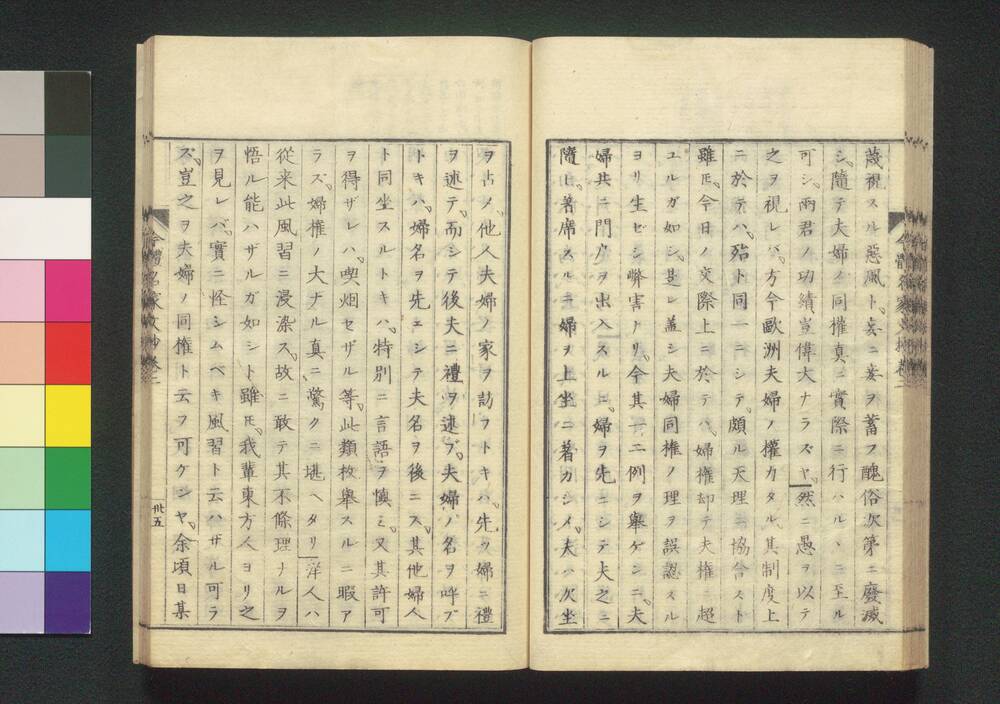 蔑視スル惡風ト、妄ニ妾ヲ蓄フ醜俗次第ニ廢滅
シ、隨テ夫婦ノ同權真ニ實際ニ行ハル丶ニ至ル
可シ、兩君ノ功績、豈偉大ナラズヤ、然ニ愚ヲ以テ
之ヲ視レバ、方今歐洲夫婦ノ權力タル、其制度上
ニ於テハ、殆ト同一ニシテ、頗ル天理ニ協合スト
雖𪜈、今日ノ交際上ニ於テハ、婦權却テ夫權ニ超
ユルガ如シ、是レ蓋シ夫婦同權ノ理ヲ誤認スル
ヨリ生ゼシ弊害ナリ、今其一二例ヲ擧ゲンニ、夫
婦共ニ門戸ヲ出入スルニ、婦ヲ先ニシテ夫之ニ
隨ヒ、著席スルニ婦ヲ上坐ニ著カシメ、夫ハ次坐
ヲ占メ、他人夫婦ノ家ヲ訪フトキハ、先ヅ婦ニ禮
ヲ述テ、而シテ後夫ニ禮ヲ述ブ、夫婦ノ名ヲ呼ブ
トキハ、婦名ヲ先ニシテ夫名ヲ後ニス、其他婦人
ト同坐スルトキハ、特別ニ言語ヲ愼ミ、又其許可
ヲ得ザレハ、喫烟セザル等、此類枚擧スルニ暇ア
ラズ、婦權ノ大ナル真ニ驚クニ堪ヘタリ、洋人ハ
從来此風習ニ浸染ス、故ニ敢テ其不條理ナルヲ
悟ル能ハザルガ如シト雖𪜈、我輩東方人ヨリ之
ヲ見レバ、實ニ怪シムベキ風習ト云ハザル可ラ
ズ、豈之ヲ夫婦ノ同權ト云フ可ケンヤ、余頃日某
卅五